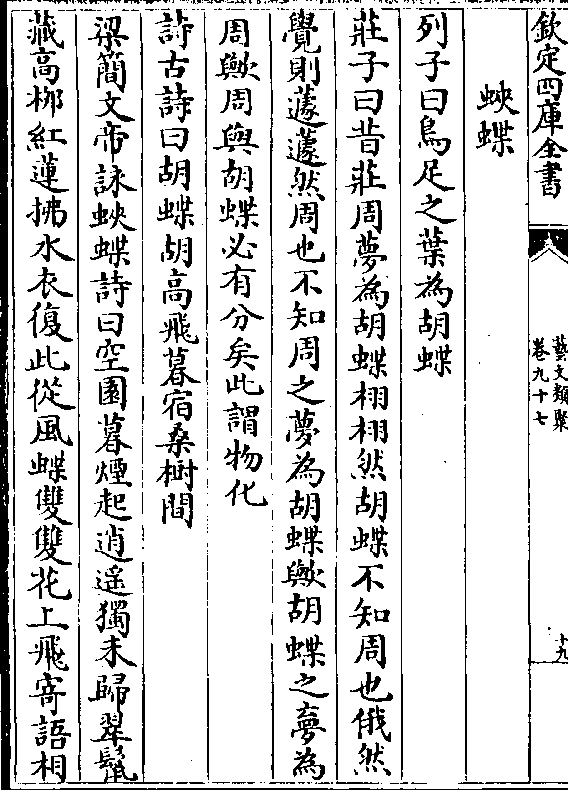 欽定四庫全書
藝文類聚
卷九十七
十九
蛺蝶
列子曰烏足之葉為胡蝶
莊子曰昔莊周夢為胡蝶栩栩然胡蝶不知周也俄然
覺則蘧蘧然周也不知周之夢為胡蝶歟胡蝶之夢為
周歟周與胡蝶必有分矣此謂物化
詩古詩曰胡蝶胡高飛暮宿桑樹間
梁簡文帝詠蛺蝶詩曰空園暮煙起逍遥獨未歸翠鬛
藏高栁紅蓮拂水衣復此從風蝶雙雙花上飛寄語相